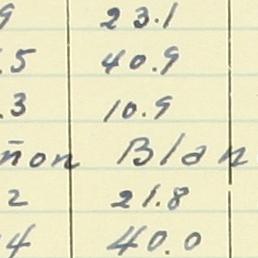 9 23.1
.5 40.9
.3 10.9
ñon Blan
2 21.8
4 40.0